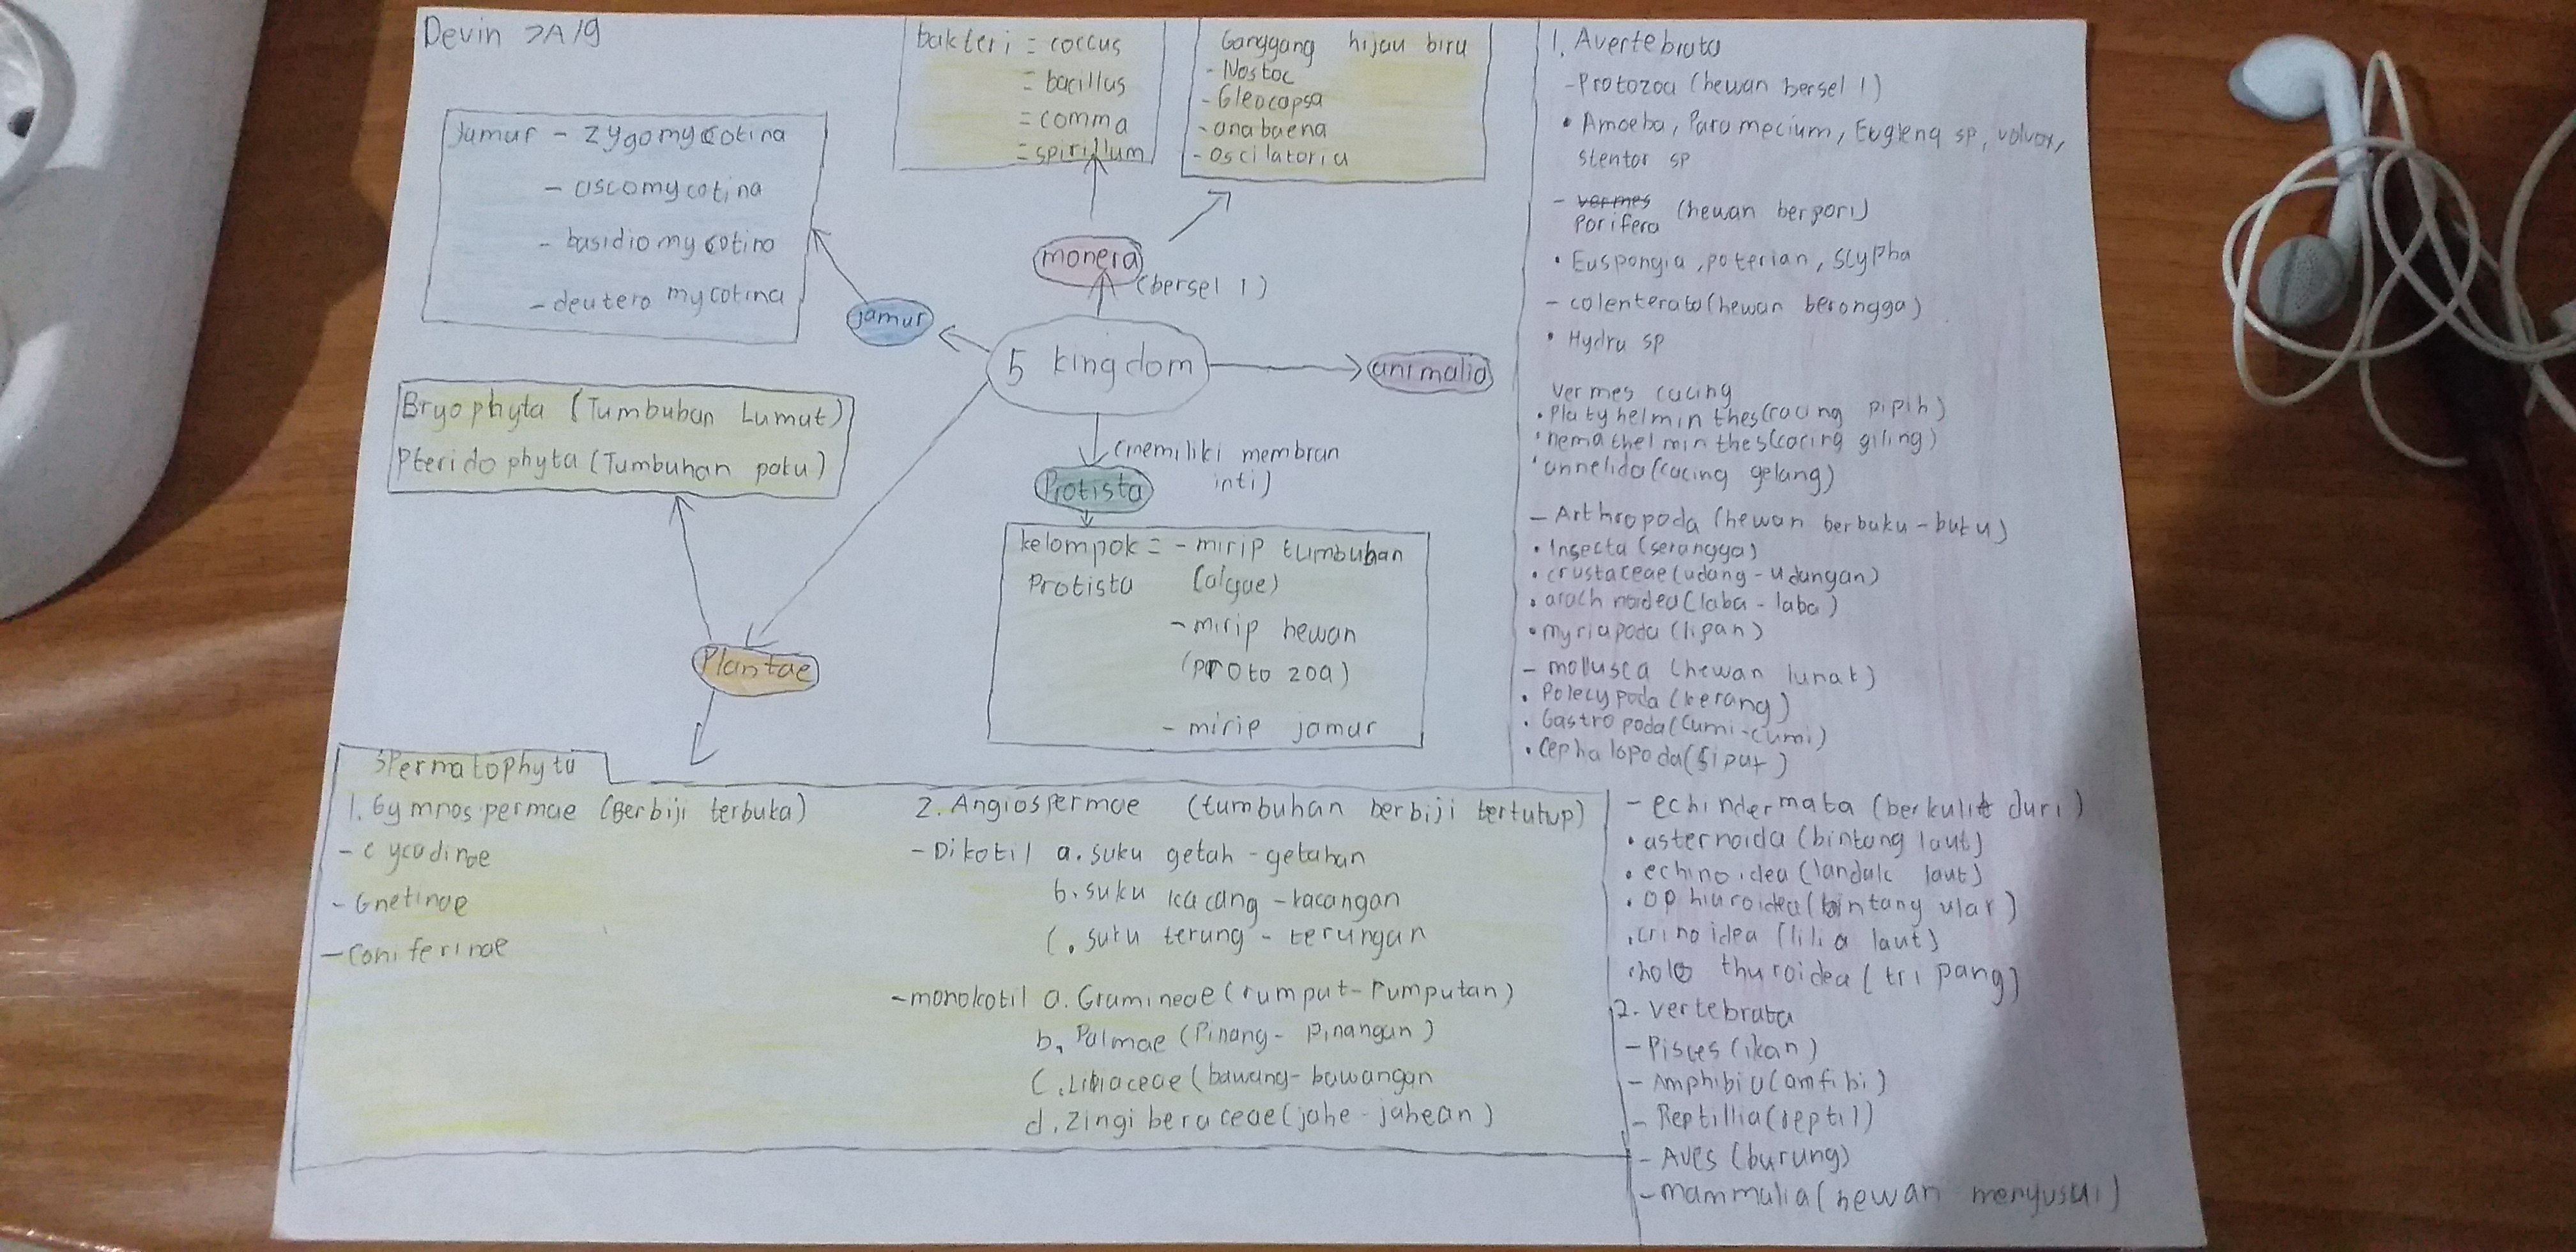 Devin 7A/9
bakteri = coccus
= bacillus
= comma
= spirillum
Ganggang hijau biru
- Nostoc
- Gleocapsa
- anabaena
- oscilatoria
Jamur - zygomycotina
- ascomycotina
- basidiomycotina
- deuteromycotina
monera
(bersel 1)
jamur
5 kingdom
animalia
Bryophyta (Tumbuhan Lumut)
Pteridophyta (Tumbuhan paku)
(memiliki membran
inti)
Protista
kelompok = - mirip tumbuhan
Protista (algae)
- mirip hewan
(protozoa)
- mirip jamur
Plantae
Spermatophyta
1. Gymnospermae (Berbiji terbuka)
- cycadinae
- Gnetinae
- Coniferinae
2. Angiospermae (tumbuhan berbiji tertutup)
- Dikotil a. suku getah - getahan
b. suku kacang - kacangan
c. suku terung - terungan
- monokotil a. Gramineae (rumput - rumputan)
b. Palmae (Pinang - Pinangan)
c. Liliaceae (bawang - bawangan
d. Zingiberaceae (jahe - jahean)
1. Avertebrata
- Protozoa (hewan bersel 1)
• Amoeba, Paramecium, Euglena sp, volvox,
stentor sp
- vermes (hewan berpori)
Porifera
• Euspongia, poterian, Scypha
- colenterata (hewan berongga)
• Hydra sp
Vermes cacing
• Platyhelminthes (cacing pipih)
• nemathelminthes (cacing giling)
• annelida (cacing gelang)
- Arthropoda (hewan berbuku - buku)
• Insecta (serangga)
• crustaceae (udang - udangan)
• arachnoidea (laba - laba)
• myriapoda (lipan)
- mollusca (hewan lunak)
• Polecypoda (kerang)
• Gastropoda (Cumi - cumi)
• Cephalopoda (siput)
- echindermata (berkulit duri)
• asternoida (bintang laut)
• echinoidea (landak laut)
• ophiuroidea (bintang ular)
• crinoidea (lilia laut)
• holothuroidea (tripang)
2. Vertebrata
- Pisces (ikan)
- Amphibia (amfibi)
- Reptillia (reptil)
- Aves (burung)
- mammalia (hewan menyusui)